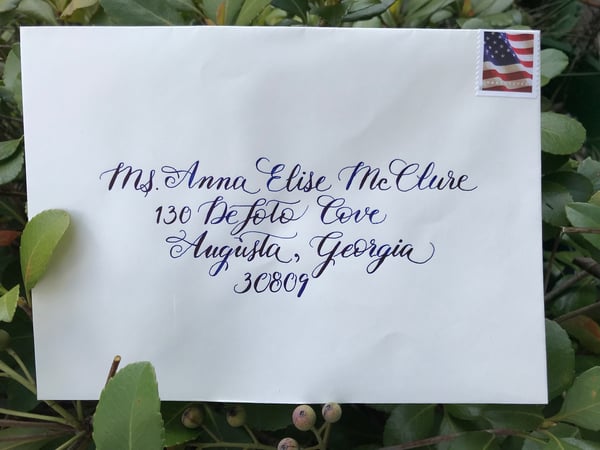 Ms. Anna Elise McClure
130 DeSoto Cove
Augusta, Georgia
30809